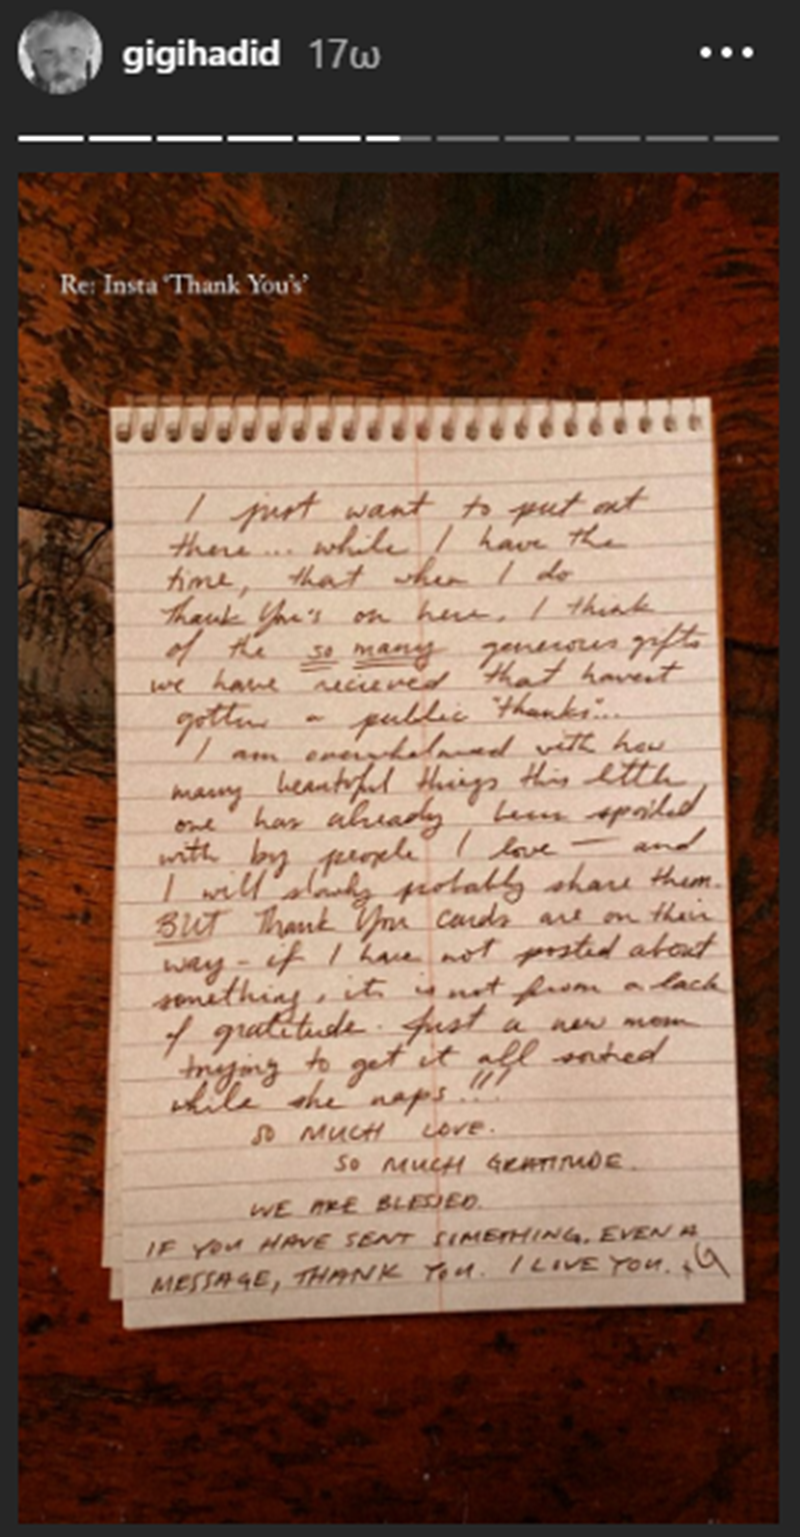 gigihadid 17ω
Re: Insta 'Thank You's'
I just want to put out
there... while I have the
time, that when I do
Thank You's on here, I think
of the so many generous gifts
we have recieved that havent
gotten a public "thanks"...
I am overwhelmed with how
many beautiful things this little
one has already been spoiled
with by people I love — and
I will slowly probably share them.
BUT Thank You cards are on their
way - if I have not posted about
something, its is not from a lack
of gratitude. Just a new mom
trying to get it all sorted
while she naps!!!
SO MUCH LOVE.
SO MUCH GRATITUDE.
WE ARE BLESSED.
IF YOU HAVE SENT SOMETHING, EVEN A
MESSAGE, THANK YOU. I LOVE YOU. xG